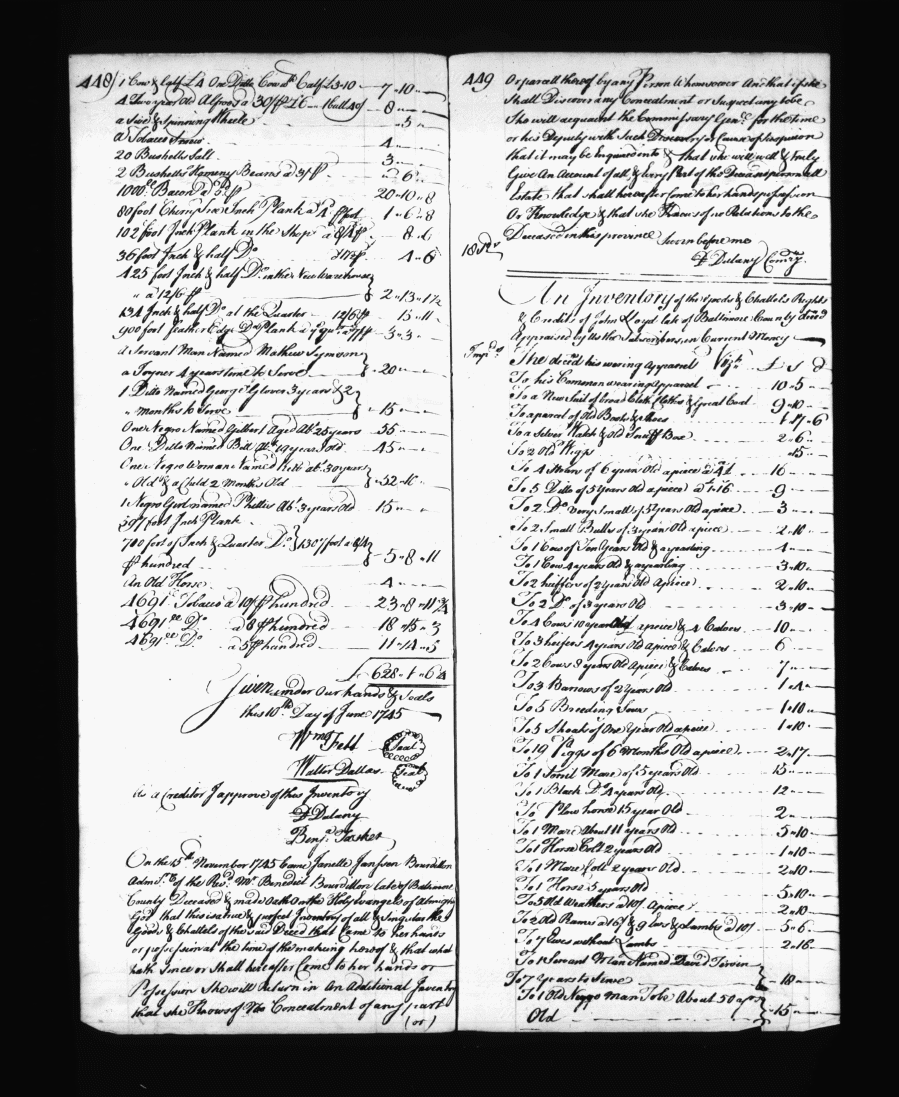 448
1 Cow & Calf £4 One Ditto Cow wth Calf £3-10 7 -10 -
4 Two year Old a 30/ £6 1 Bull 40/ 8 -
a Sive & Spinning Wheele - 5 -
a Tobacco 4
20 Bushells Salt 3
2 Bushells Homeny Beans a 3/ - 6 -
1000 Bacon a 5d 20 -10 - 8
80 foot Cherry tree Inch Plank a 4d foot 1 - 6 - 8
102 foot Inch Plank in the Shop a 8/4 8 - 6
36 foot Inch & half Do 4 - 6
425 foot Inch & half Do in the New Warehouse
" a 12/6 2 - 13 - 1½
134 Inch & half Do at the Quarter 12/6 15 - 11
900 foot feather Edge Plank a 7/ 3 - 3 -
a Servant Man Named Mathew Symson
a Joyner 4 years time to Serve 20
1 Ditto Named George Glover 3 years & 2
" Months to Serve 15
One Negro Named Gilbert Aged Abt 25 years 55
One Ditto Named Bill Abt 19 years old 45
One Negro Woman Named abt 30 years
" Old & a Child 2 Months Old 52 -10 -
1 Negro Girl named Phillis Abt 3 years Old 15
597 foot Inch Plank
710 foot of Inch & Quarter Do 1307 foot a 8/4
hundred 5 - 8 - 11
An Old Horse 4
4691 Tobacco a 10/ hundred 23 - 9 - 11¾
4691 Do a 8 hundred 18 -15 - 3
4691 Do a 5 hundred 11 -14 - 5
£ 628 - 1 - 6¼
Given under Our hands & Seals
this 10th Day of June 1745
Wm Fell Seal
Walter Dallas Seal
As a Creditor I approve of this Inventory
D Dulany
Benja Tasker
On the 15th November 1745 Came Janette Janssen Bourdillon
Admx of the Revd Mr Benedict Bourdillon late of Baltimore
County Deceased & made Oath on the Holy Evangels of Almighty
God that this is a true & perfect Inventory of all & Singular the
Goods & Chattels of the said Deced that Came to her hands
or possession at the time of the making hereof & that what
hath Since or Shall hereafter Come to her hands or
Possession She will return in An Additional Inventory
that she Knows of No Concealment of any part
(or)
449
Or parcell thereof by any Person Whomsoever And that if she
Shall Discover any Concealment or Suspect any to be
She will acquaint the Commissary Genl for the time
or his Deputy with Such Discovery or Cause of Suspicion
that it may be Enquired into & that she will well & truly
Give An Account of all & every Part of the Deceas personall
Estate that shall hereafter Come to her hands possession
Or Knowledge & that she Knows of no Relations to the
Deceased in this province Sworn before me
D Dulany Comry
An Inventory of the Goods & Chattels Rights
& Credits of John Loyd late of Baltimore County deced
Appraised by Us the Subscribers, in Current Money
Impds The deced his wearing Apparel Vizt £ S d
To his Common wearing Apparel 10 - 5 -
To a New Suit of broad Cloth Clothes & Great Coat 9 -10 -
To a parcel of Old Books & Shoes 1 -17 - 6
To a Silver Watch & Old Snuff Box 2 - 6 -
To 2 Old Wigs - 15 -
To 4 Steers of 6 years Old a piece a 4£ 16
To 5 Ditto of 5 Years Old a piece a 1-16 9
To 2 Do very Small of 5 Years Old a piece 3
To 2 Small Bulls of 3 years Old a piece 2 -10
To 1 Cow of Ten Years Old & a yearling 4
To 1 Cow 4 years Old & a yearling 3 -10
To 2 heiffers of 2 years Old apiece 2 -10
To 2 Do of 3 years Old 3 -10
To 4 Cows 10 years Old apiece & 4 Calves 10
To 3 heifers 4 years Old apiece & Calves 6
To 2 Cows 8 years Old Apiece & Calves 7
To 3 Barrows of 2 years Old 1 - 4 -
To 5 Breeding Sows 1 -10 -
To 5 Shoats of One Year Old a piece 1 -10
To 19 Piggs of 6 Months Old apiece 2 -17 -
To 1 Sorril Mare of 5 years Old 15
To 1 Black Do 4 years Old 12
To 1 Plow horse 15 year Old 2
To 1 Mare About 11 years Old 5 -10
To 1 Horse Colt 2 years Old 1 -10
To 1 Mare Colt 2 years Old 2 -10
To 1 Horse 5 years Old 5 -10
To 5 Old Weathers a 10/ Apiece 2 -10
To 2 Old Rams a 16/ & 9 Ews & Lambs a 10/ 5 - 6 -
To 7 Ewes without Lambs 2 -16
To 1 Servant Man Named David
To 7 Years to Serve 18
To 1 Old Negro Man Tobe About 50 years
Old 15